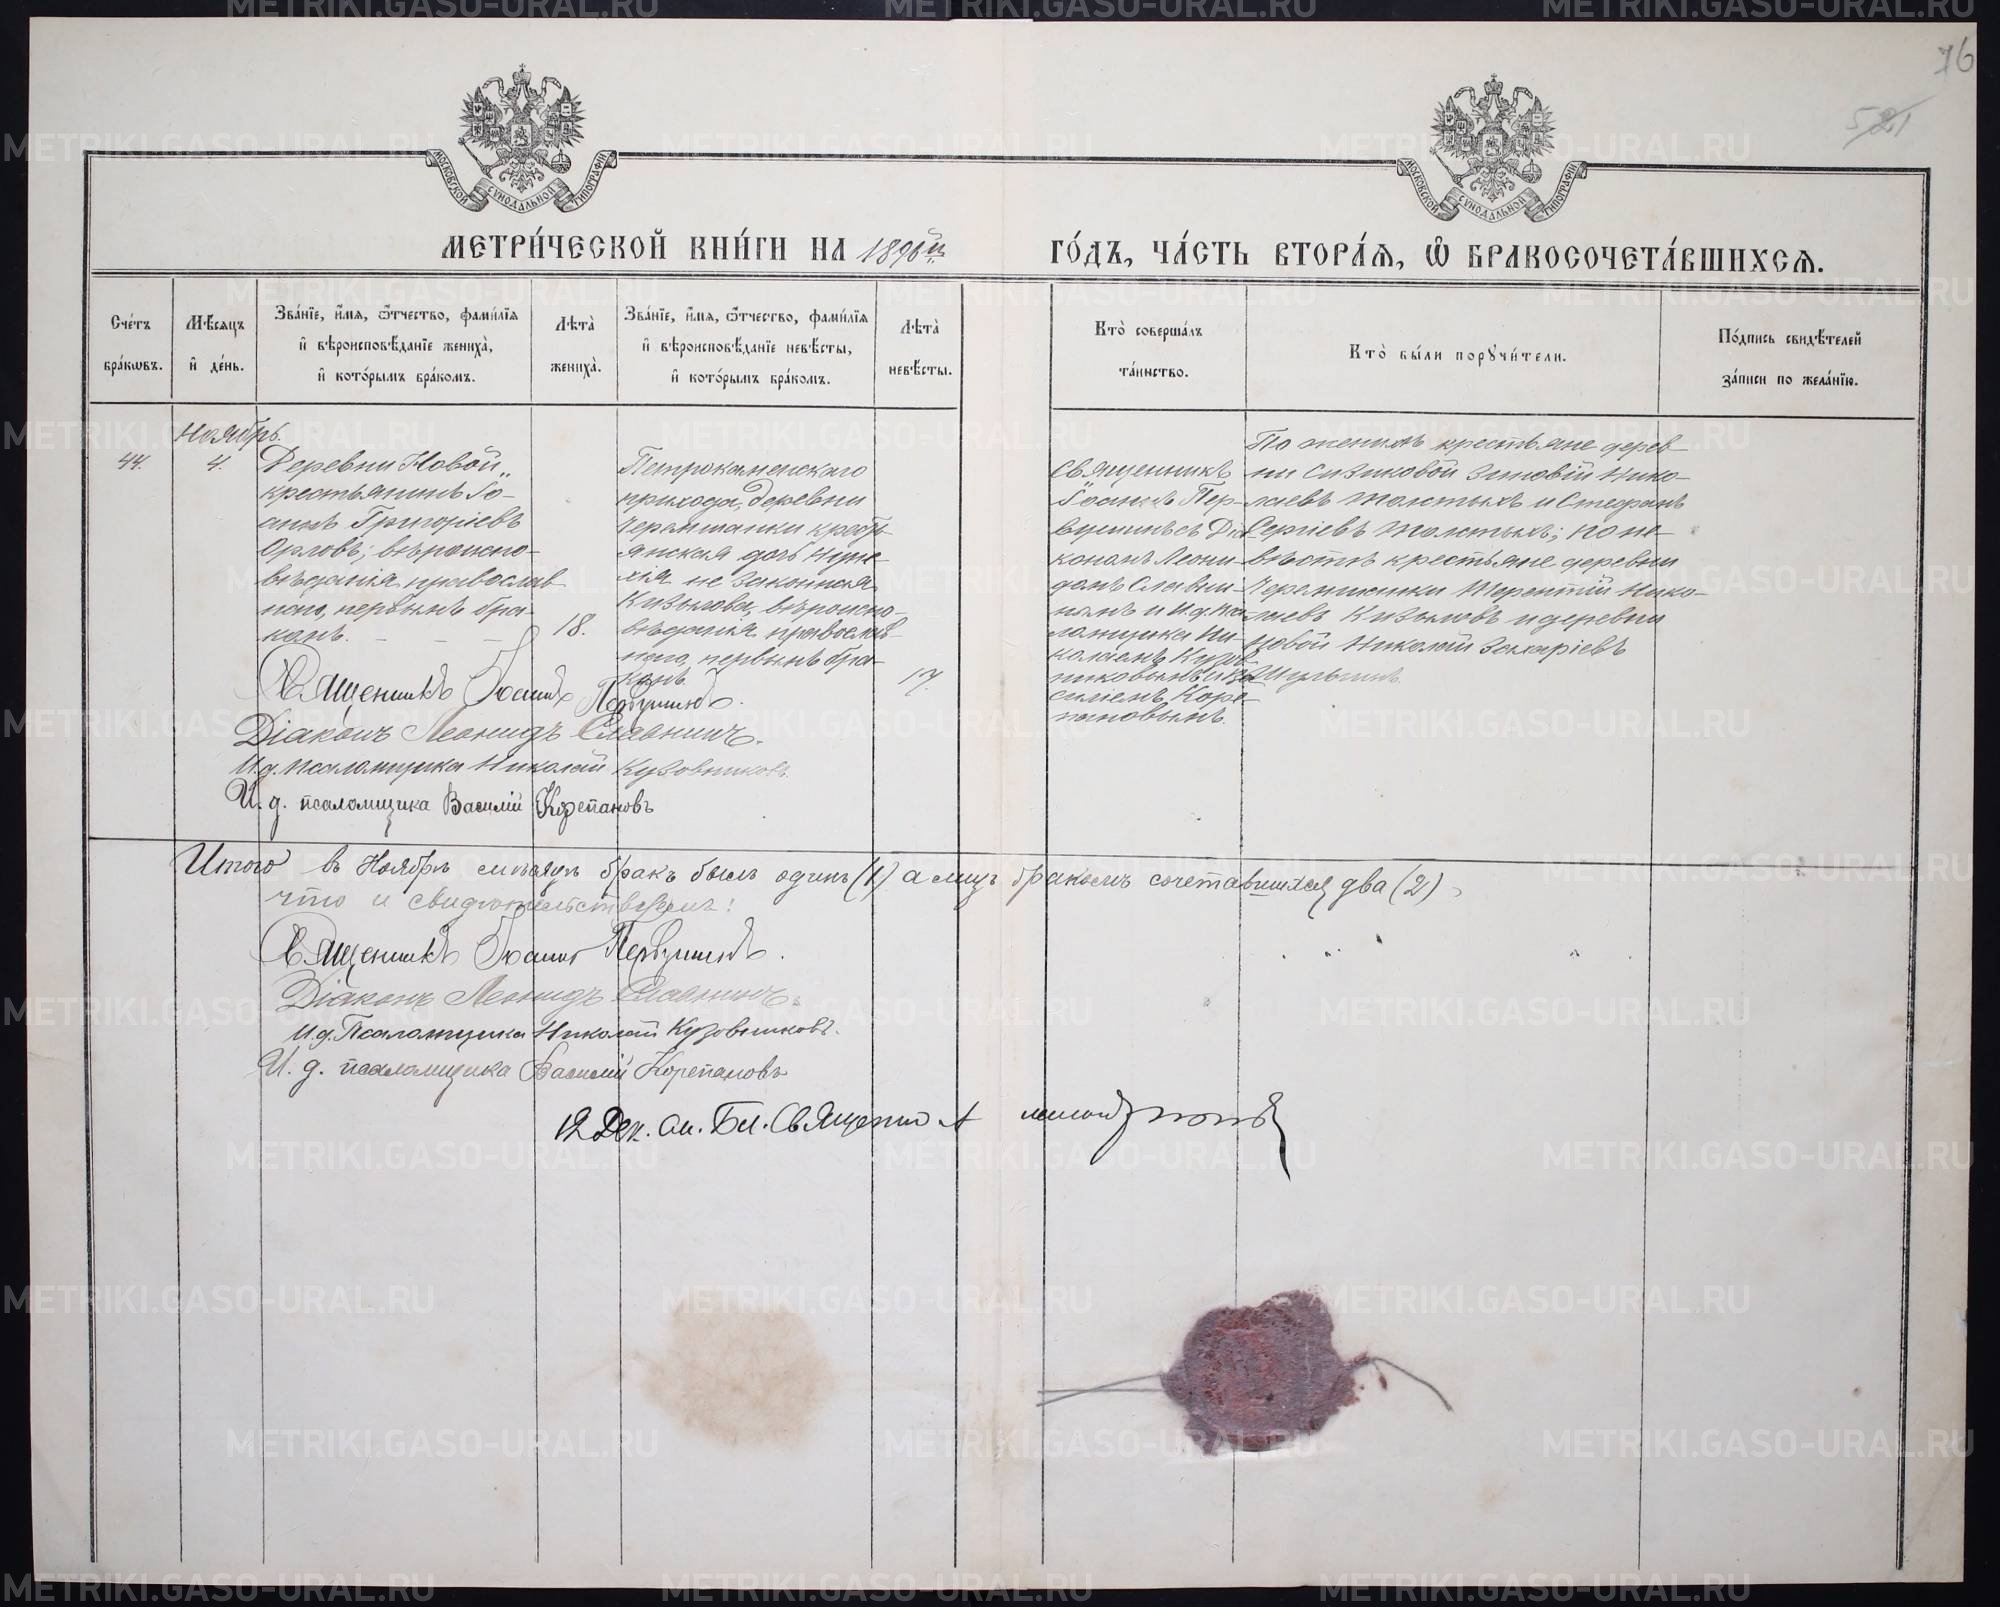 76
521
МОСКОВСКОЙ СУНОДАЛЬНОЙ ТИПОГРАФІИ
МОСКОВСКОЙ СУНОДАЛЬНОЙ ТИПОГРАФІИ
МЕТРИ́ЧЕСКОЙ КНИ́ГИ НА 1896й
ГО́ДЪ, ЧА́СТЬ ВТОРА́Ѧ, Ѽ БРАКОСОЧЕТА́ВШИХСѦ.
Сче́тъ
бра́кѡвъ.
Мѣ́сѧцъ
и де́нь.
Зва́нїе, и́мѧ, ѻ҆́тчество, фами́лїѧ
и вѣроисповѣ́данїе жениха̀,
и кото́рымъ бра́комъ.
Лѣта̀
жениха̀.
Зва́нїе, и́мѧ, ѻ҆́тчество, фами́лїѧ
и вѣроисповѣ́данїе невѣ́сты,
и кото́рымъ бра́комъ.
Лѣта̀
невѣ́сты.
Кто̀ соверша́лъ
та́инство.
Кто̀ бы́ли порꙋчи́тели.
По́дпись свидѣ́телей
за́писи по жела́нїю.
Ноябрь.
44.
4.
Деревни Новой
крестьянинъ Іо-
аннъ Григоріевъ
Орловъ; вѣроиспо-
вѣданія православ
наго, первымъ бра-
комъ.
18.
Петрокаменскаго
прихода, деревни
Черемшанки кресть-
янская дочь
не законная
Кизылова, вѣроиспо-
вѣданія православ-
наго, первымъ бра-
комъ.
17.
Священникъ
Іоаннъ Пер-
вушинъ съ Діа
кономъ Леони-
домъ Славни-
нымъ и И.д. пса
ломщика Ни-
колаемъ Кузов
никовымъ и Ва
силіемъ Коре-
пановымъ.
По женихѣ крестьяне дерев-
ни Сизиковой Зиновій Нико-
лаевъ Толстыхъ и Стефанъ
Сергіевъ Толстыхъ; по не-
вѣстѣ крестьяне деревни
Черемшанки Терентій Нико-
лаевъ Кизыловъ и деревни
Новой Николай Захаріевъ
Шульгинъ.
Священникъ Іоаннъ Первушинъ.
Діаконъ Леонидъ Славнинъ.
И.д. псаломщика Николай Кузовниковъ.
И. д. псаломщика Василій Корепановъ
Итого въ Ноябрѣ мѣсяцѣ бракъ былъ одинъ (1) а лицъ бракомъ сочетавшихся два (2),
что и свидѣтельствуемъ:
Священникъ Іоаннъ Первушинъ.
Діаконъ Леонидъ Славнинъ.
И.д. Псаломщика Николай Кузовниковъ.
И. д. псаломщика Василій Корепановъ